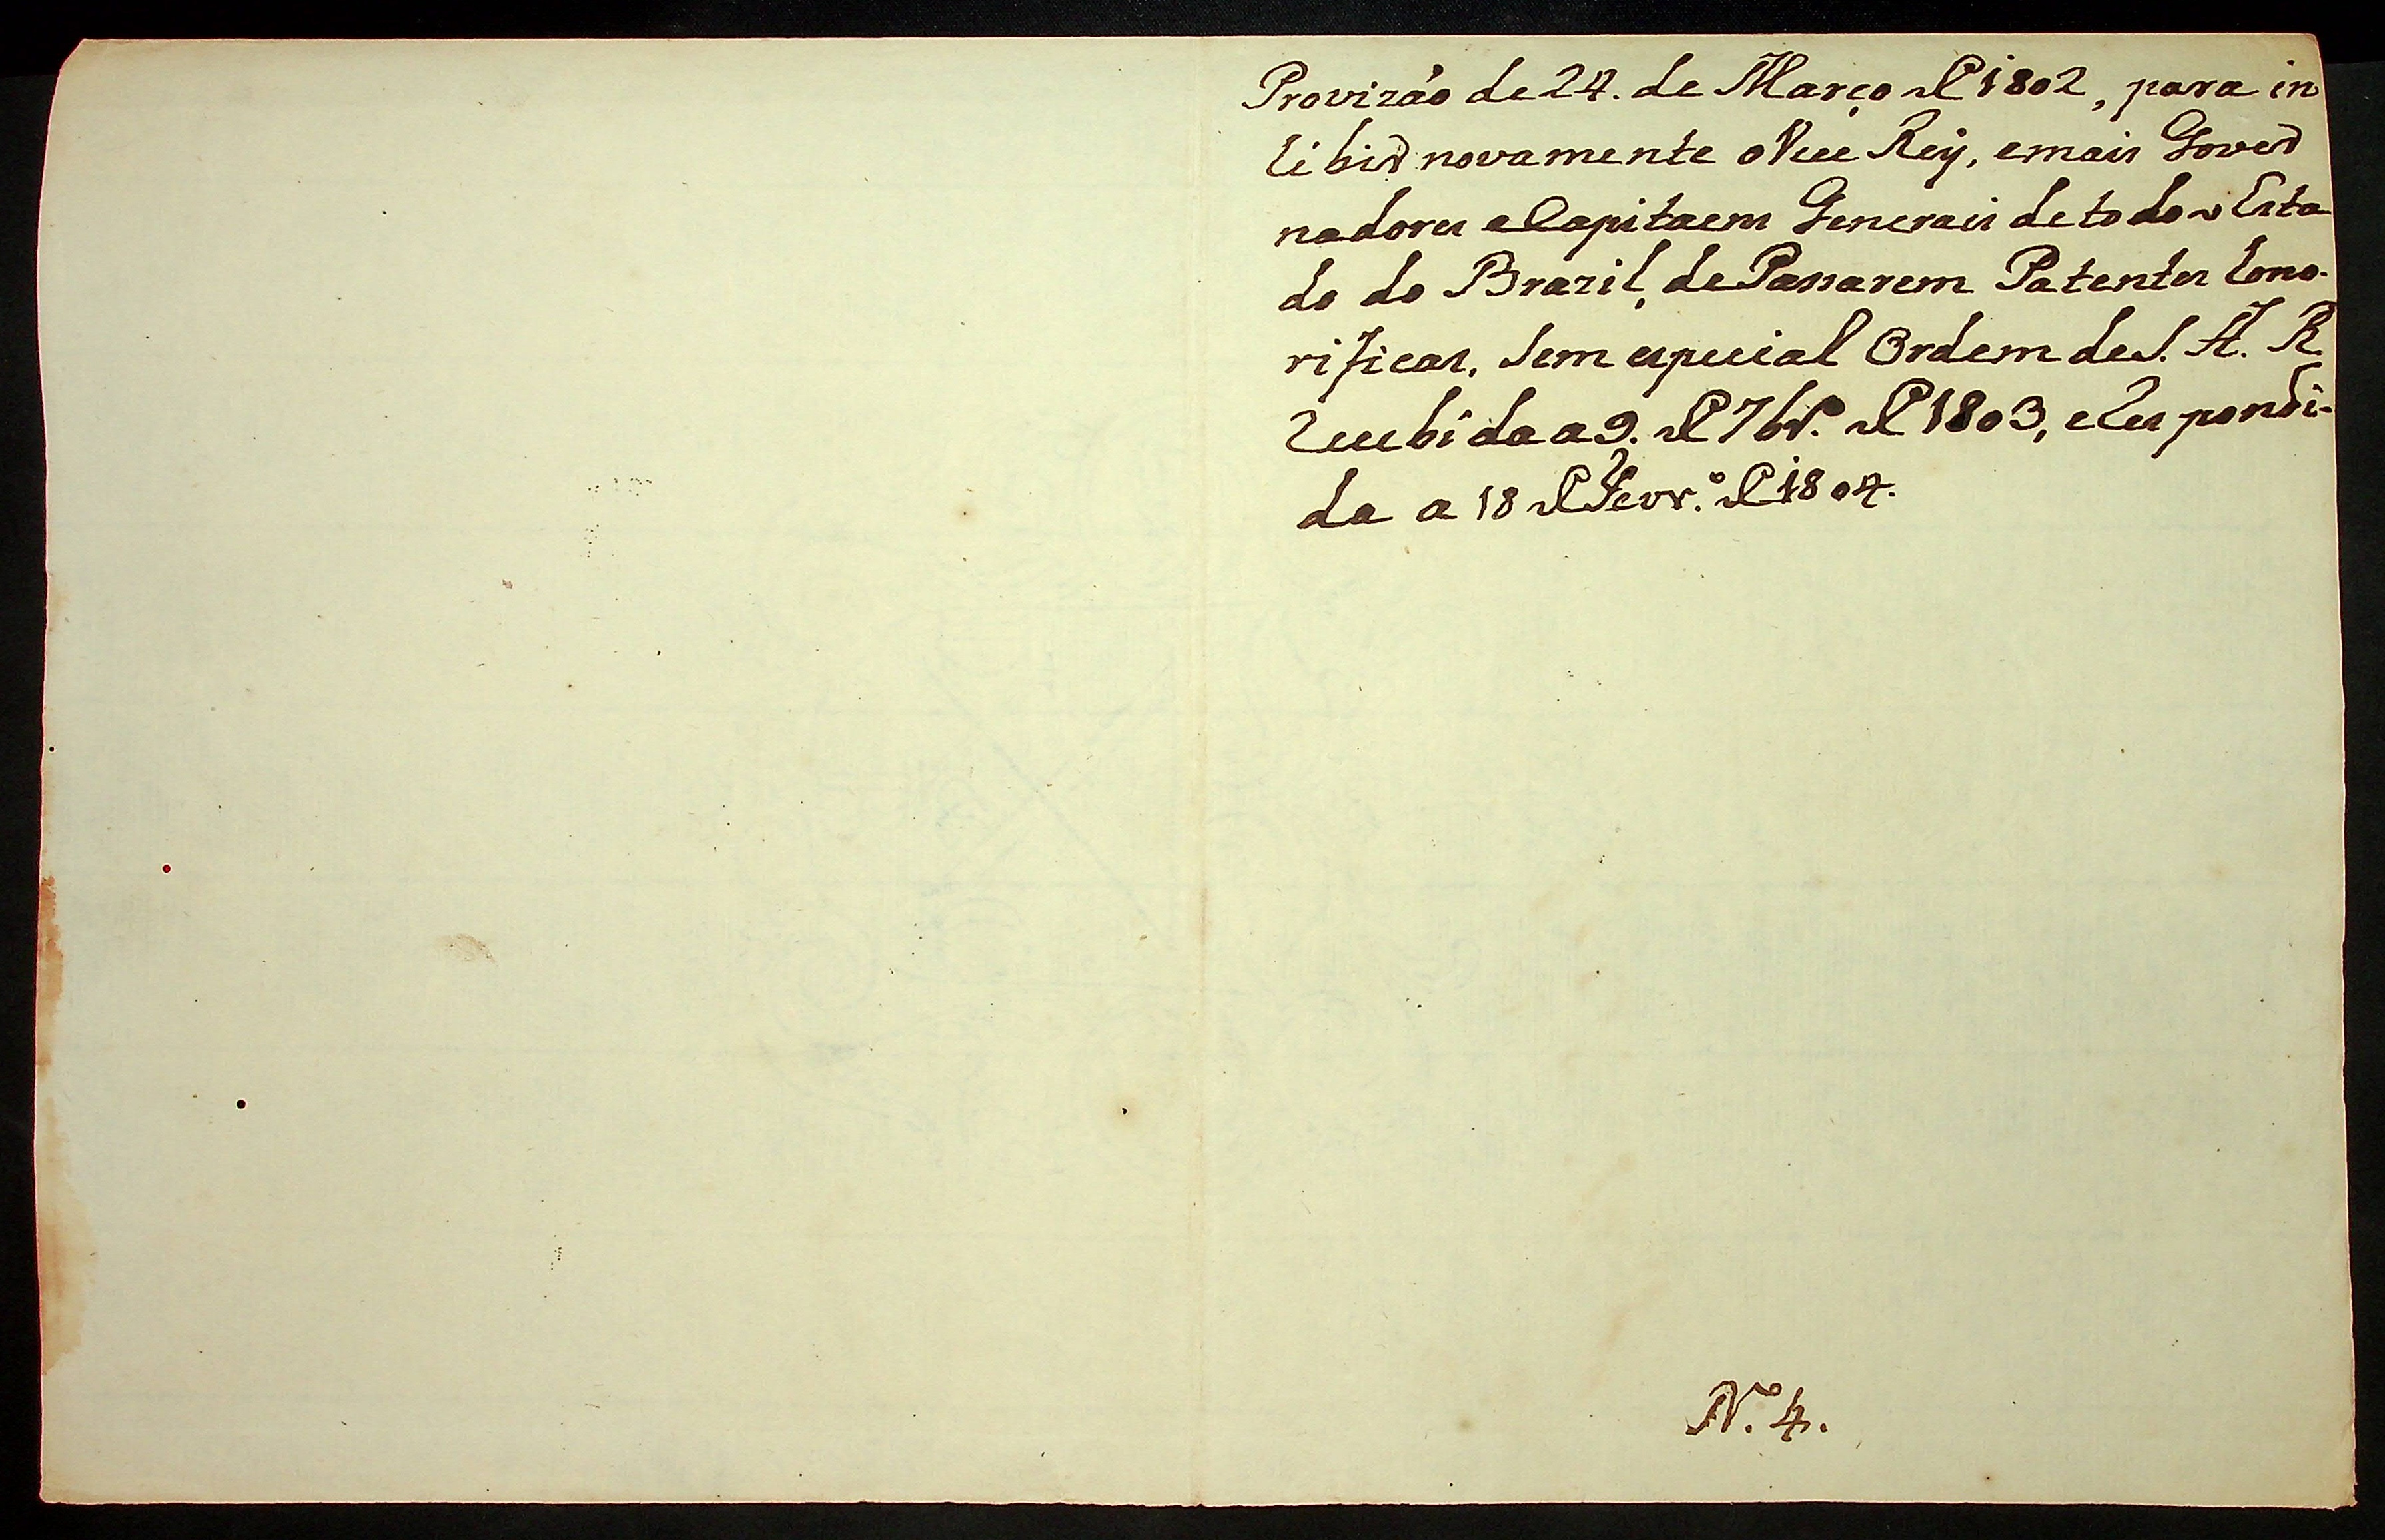 Provizão de 24. de Março de 1802, para in
hibir novamente o Vice Rey, e mais Gover
nadores e Capitaens Generais de todo o Esta
do do Brazil, de Passarem Patentes hono-
rificas, sem especial Ordem de S. A. R.
Recebida a 9. de 7br.º de 1803, e Respondi-
da a 18 de Fevr.º de 1804.
N.º 4.